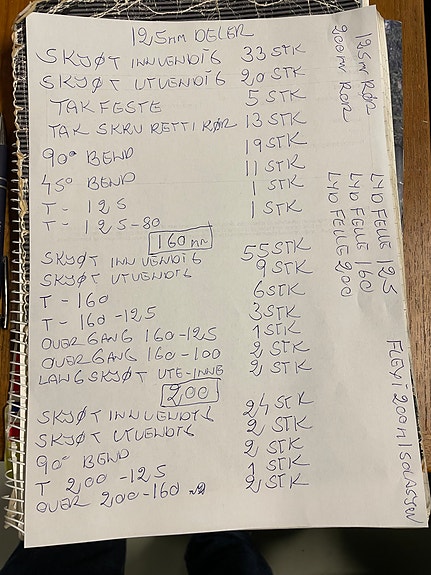 125mm DELER
SKJØT INNVENDIG 33 STK
SKJØT UTVENDIG 20 STK
TAKFESTE 5 STK
TAK SKRU RETTI RØR 13 STK
90° BEND 19 STK
45° BEND 11 STK
T - 125 1 STK
T - 125-80 1 STK
160mm
SKJØT INNVENDIG 55 STK
SKJØT UTVENDIG 9 STK
T - 160 6 STK
T - 160-125 3 STK
OVERGANG 160-125 1 STK
OVERGANG 160-100 2 STK
LANGSKJØT UTE-INNE 2 STK
200
SKJØT INNVENDIG 24 STK
SKJØT UTVENDIG 2 STK
90° BEND 2 STK
T 200-125 1 STK
OVER 200-160 2 STK
125mm RØR
200mm RØR
LYD FELLE 125
LYD FELLE 160
LYD FELLE 200
FLEXI 200 M ISOLASJON